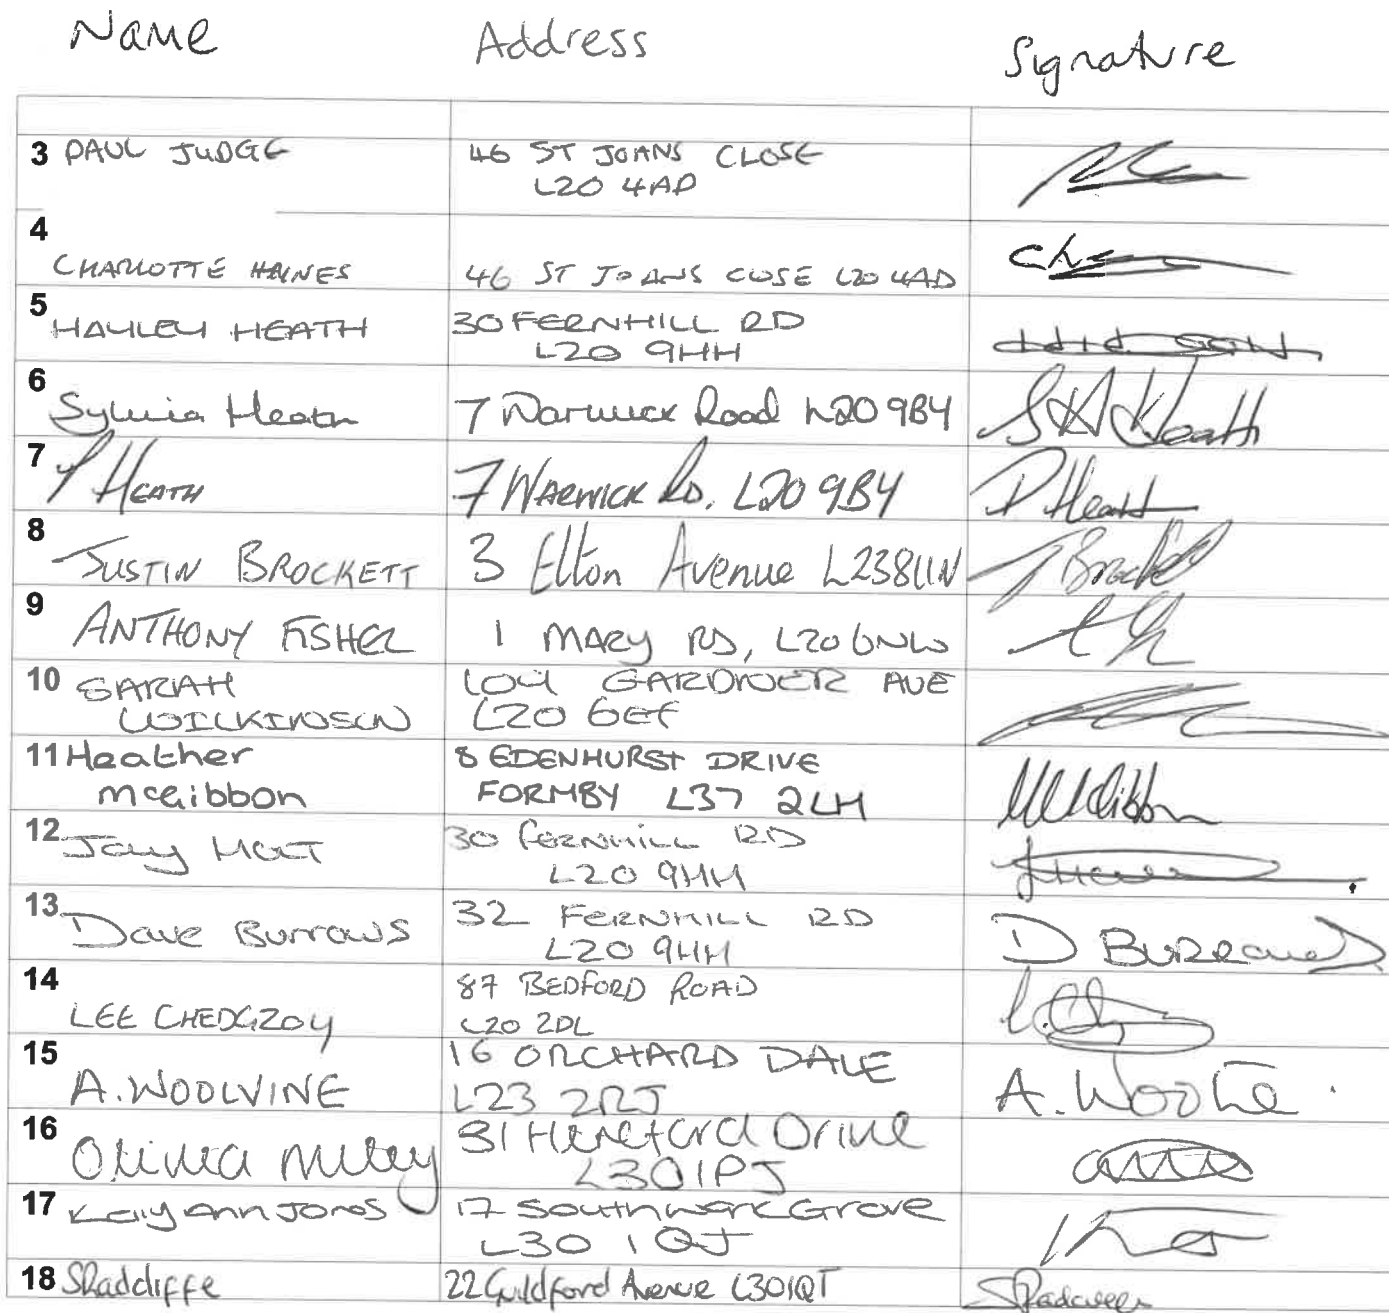 Name Address Signature
3 PAUL JUDGE 46 ST JOANS CLOSE
L20 4AD
4
CHARLOTTE HAINES 46 ST JOANS CLOSE L20 4AD
5 HAYLEY HEATH 30 FERNHILL RD
L20 9HH
6 Sylvia Heath 7 Warwick Road L20 9BY S A Heath
7 P HEATH 7 WARWICK RD. L20 9BY P Heath
8 JUSTIN BROCKETT 3 Elton Avenue L238UN J Brockett
9 ANTHONY FISHER 1 MARY RD, L20 6NW
10 SARAH 104 GARDNER AVE
WILKINSON L20 6EF
11 Heather 8 EDENHURST DRIVE
McGibbon FORMBY L37 2LH
12 Jay 30 FERNHILL RD
L20 9HH
13 Dave Burrows 32 FERNHILL RD D BURROWS
L20 9HH
14 87 BEDFORD ROAD
LEE CHEDGZOY L20 2DL
15 16 ORCHARD DALE
A. WOOLVINE L23 2RJ A. Woo
16 Olivia 31 Hereford Drive
L30 1PJ
17 Kelly Ann Jones 17 Southwark Grove
L30 1QJ
18 SRadcliffe 22 Guildford Avenue L301QT SRadcliffe